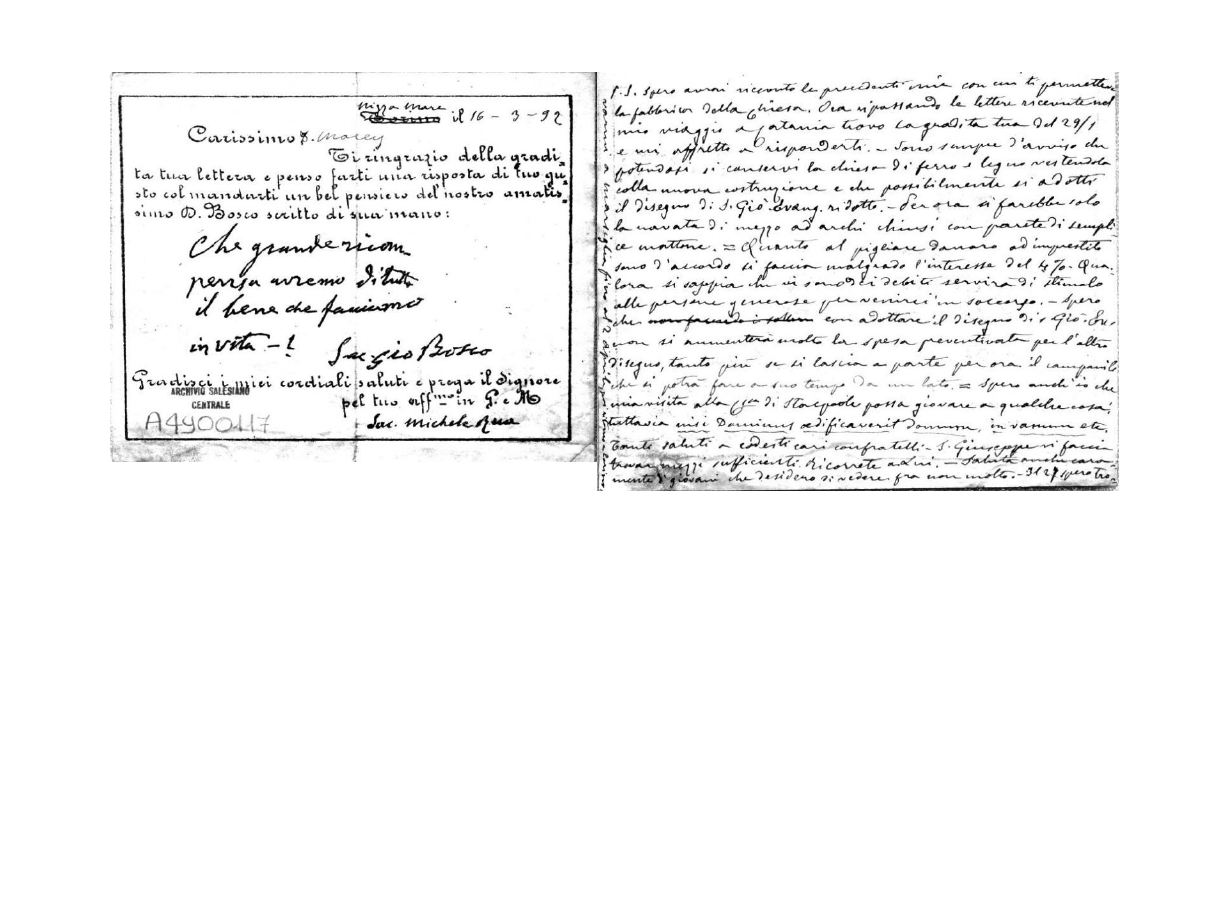 Nizza Mare
Torino il 16 - 3 - 92
Carissimo D. Macey
Ti ringrazio della gradi=
ta tua lettera e penso farti una risposta di tuo gu=
sto col mandarti un bel pensiero del nostro amatis=
simo D. Bosco scritto di sua mano:
Che grande ricom
pensa avremo di tutto
il bene che facciamo
in vita - !
Sac Gio Bosco
Gradisci i miei cordiali saluti e prega il Signore
pel tuo affmo in G. e M
Sac. Michele Rua
ARCHIVIO SALESIANO
CENTRALE
A4900117
P.S. Spero avrai ricevuto le precedenti mie con cui ti permetteva
la fabbrica della Chiesa. Ora ripassando le lettere ricevute nel
mio viaggio a Catania trovo la gradita tua del 29/1
e mi affretto a risponderti. - Sono sempre d'avviso che
potendosi si conservi la chiesa di ferro e legno vestendola
colla nuova costruzione e che possibilmente si adotti
il disegno di S. Gio. Evang. ridotto. - Per ora si farebbe solo
la navata di mezzo ad archi chiusi con parete di sempli
ce mattone. = Quanto al pigliare danaro ad imprestito
sono d'accordo si faccia malgrado l'interesse del 4%. Qua-
lora si sappia che vi sono dei debiti servirà di stimolo
alle persone generose per venirci in soccorso. - Spero
che con adottare il disegno di S. Gio. Ev.
non si aumenterà molto la spesa preventivata per l'altro
disegno, tanto più se si lascia a parte per ora il campanile
che si potrà fare a suo tempo da un lato. = Spero anch'io che
una visita alla Cssa di Stacpoole possa giovare a qualche cosa;
tuttavia nisi Dominus aedificaverit domum, in vanum etc.
Tanti saluti a codesti cari confratelli - S. Giuseppe vi faccia
trovar mezzi sufficienti. Ricorrete a lui. - Saluta anche cara-
mente i giovani che desidero rivedere fra non molto. - Il 27 spero tro-